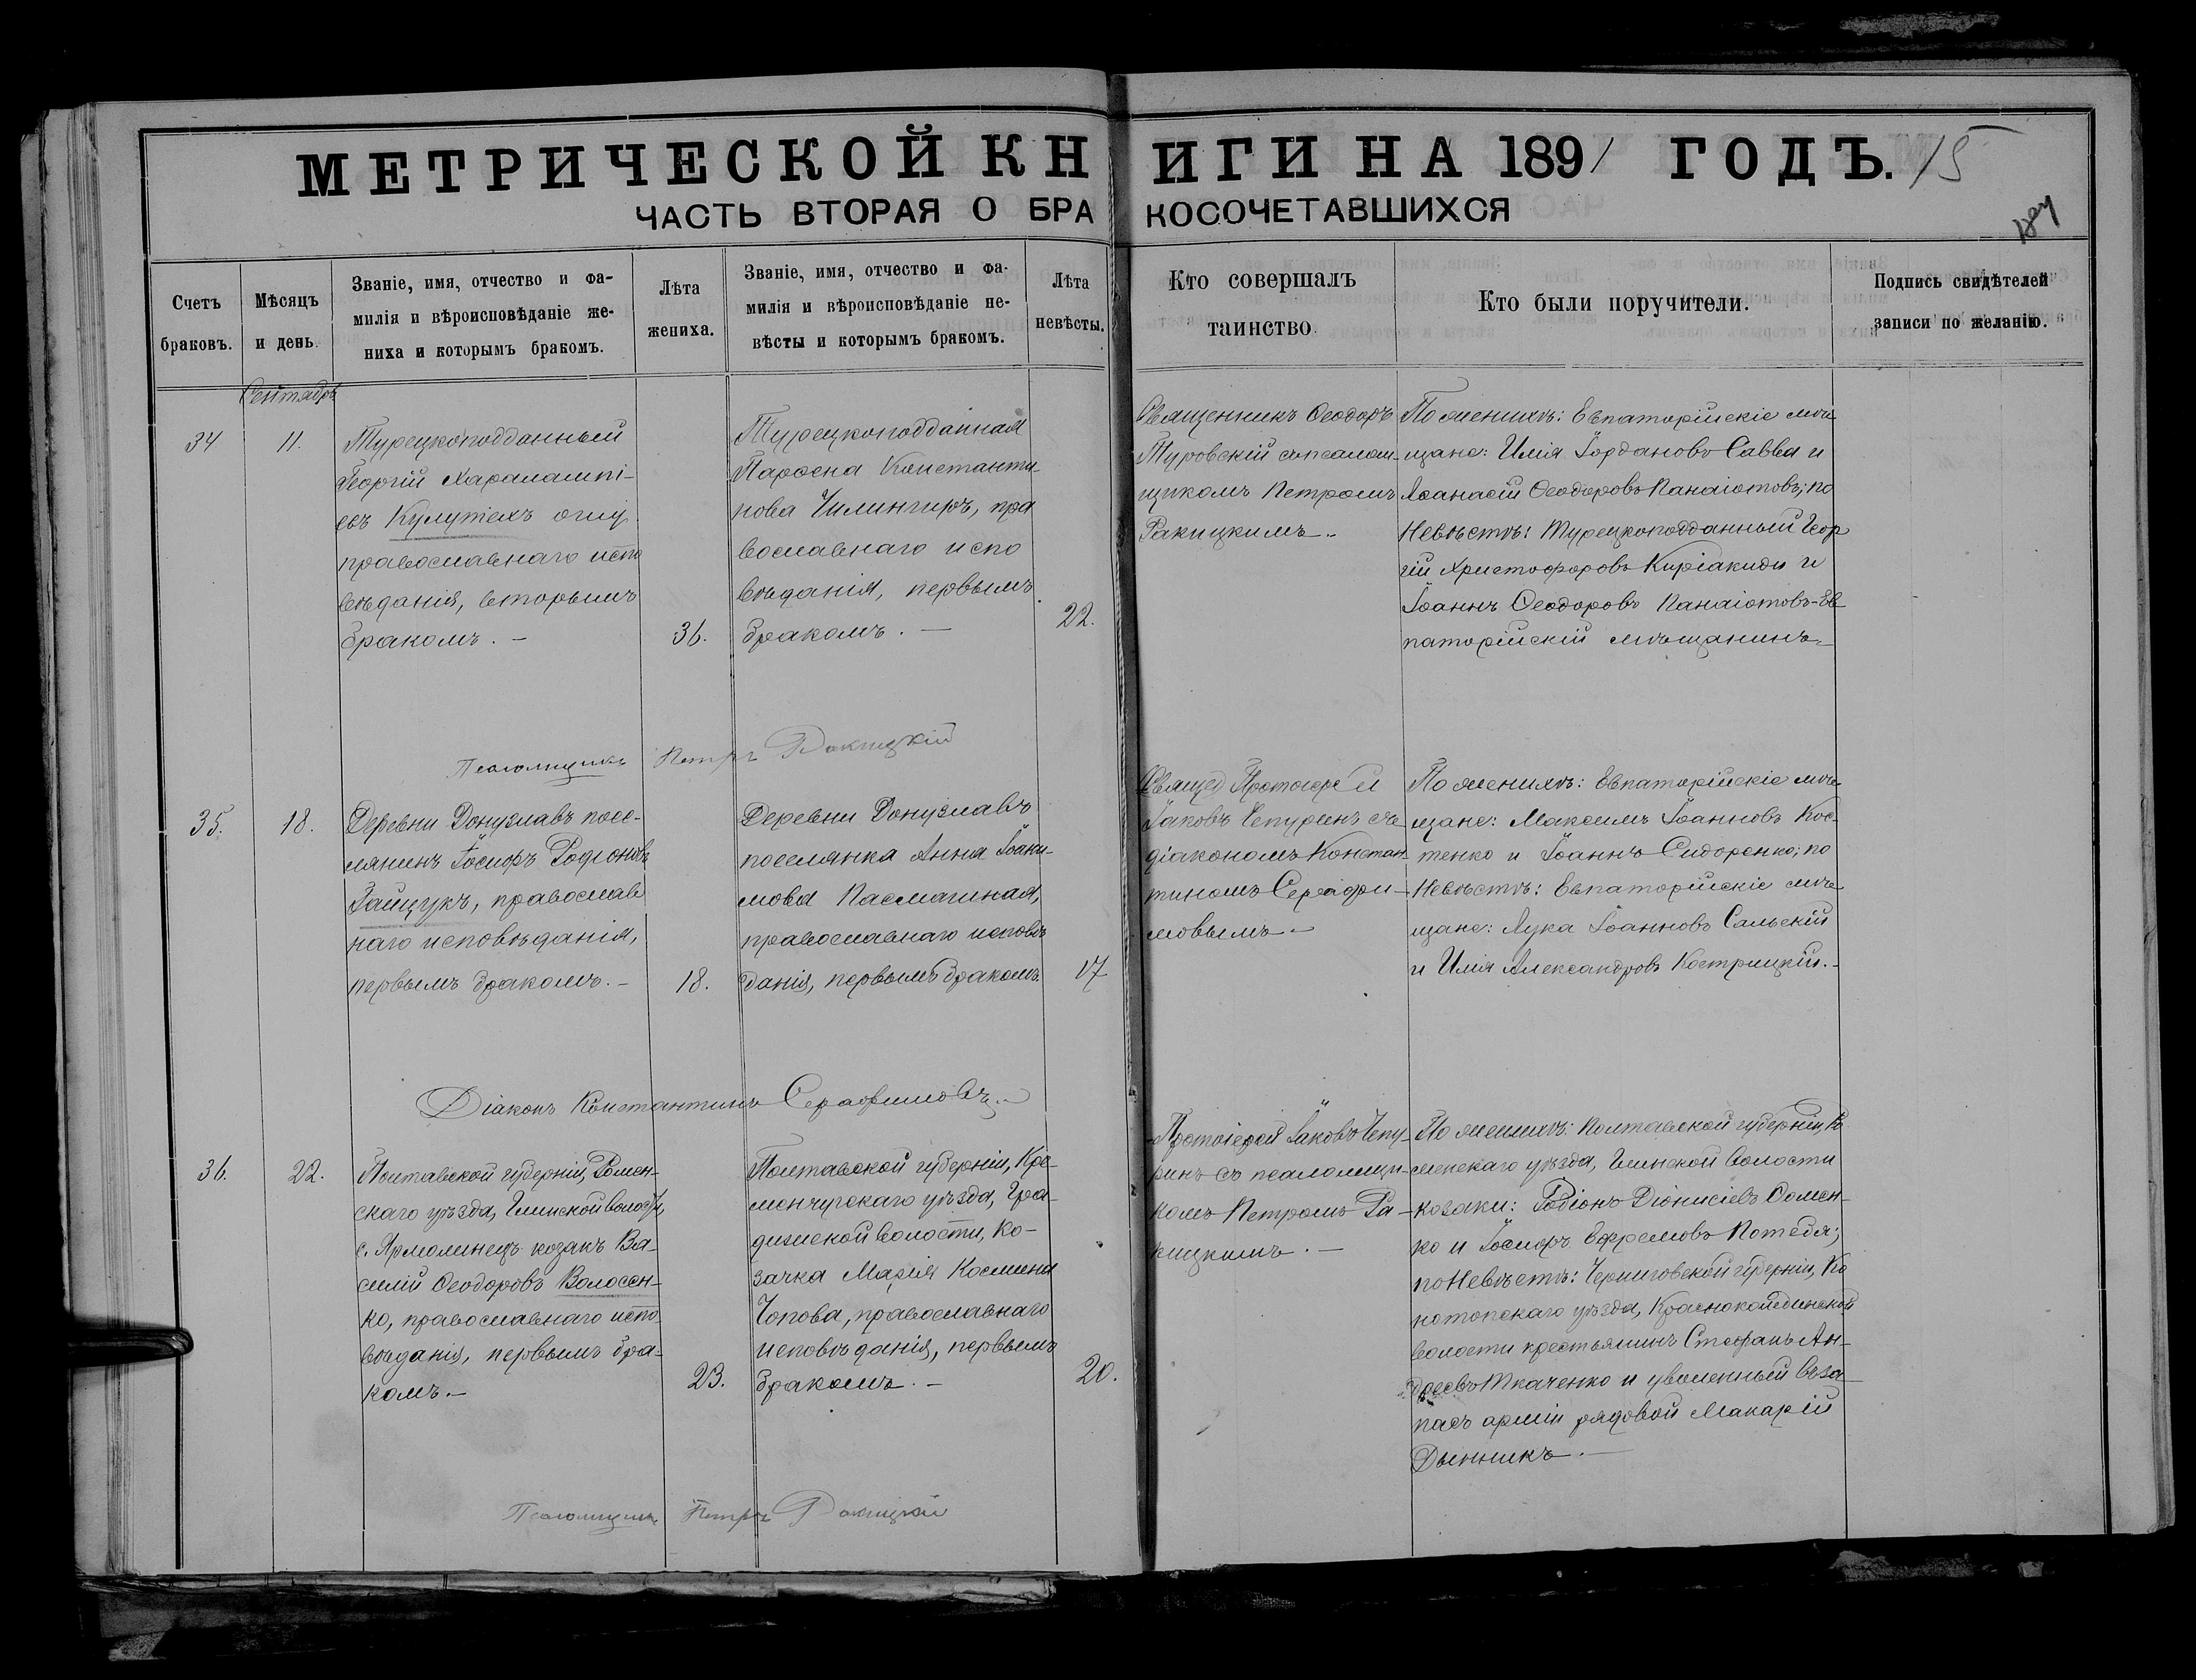 МЕТРИЧЕСКОЙ КНИГИ НА 1891 ГОДЪ. 15
ЧАСТЬ ВТОРАЯ О БРАКОСОЧЕТАВШИХСЯ
Счетъ
браковъ.
Мѣсяцъ
и день.
Званіе, имя, отчество и фа-
милія и вѣроисповѣданіе же-
ниха и которымъ бракомъ.
Лѣта
жениха.
Званіе, имя, отчество и фа-
милія и вѣроисповѣданіе не-
вѣсты и которымъ бракомъ.
Лѣта
невѣсты.
Кто совершалъ
таинство
Кто были поручители.
Подпись свидѣтелей
записи по желанію.
Сентябрь
34
11.
Турецкоподданный
Георгій Харалампі-
евъ Кулутіехъ
православнаго испо
вѣданія, вторымъ
бракомъ. -
36.
Турецкоподданная
Парѳена Константи-
нова Чилингиръ, пра
вославнаго испо
вѣданія, первымъ
бракомъ. -
22.
Священникъ Ѳеодоръ
Туровскій съ псалом-
щикомъ Петромъ
Ракицкимъ.
По женихѣ: Евпаторійскіе мѣ-
щане: Илія Іордановъ Савва и
Аѳанасій Ѳеодоровъ Панаіотовъ; по
Невѣстѣ: Турецкоподданный Геор
гій Христофоровъ Киріакиди и
Іоаннъ Ѳеодоровъ Панаіотовъ-Ев
паторійскій мѣщанинъ
Псаломщикъ Петръ Ракицкій
35.
18.
Деревни Донузлавъ посе-
лянинъ Іосифъ Родіоновъ
Гайцукъ, православ
наго исповѣданія,
первымъ бракомъ. -
18.
Деревни Донузлавъ
поселянка Анна Іоаки-
мова Пасмагиная,
православнаго исповѣ
данія, первымъ бракомъ.
17
Протоіерей
Іаковъ Чепуринъ съ
діакономъ Констан-
тиномъ Серафи-
мовымъ -
По женихѣ: Евпаторійскіе мѣ-
щане: Максимъ Іоанновъ Кос-
тенко и Іоаннъ Сидоренко; по
Невѣстѣ: Евпаторійскіе мѣ-
щане: Лука Іоанновъ Сальскій
и Илія Александровъ Кострицкій. -
Діаконъ Константинъ Серафимовъ
36.
22.
Полтавской губерніи, Ромен-
скаго уѣзда, Глинской волости,
с. Ярмолинецъ козакъ Ва-
силій Ѳеодоровъ Волосен-
ко, православнаго испо
вѣданія, первымъ бра-
комъ. -
23.
Полтавской губерніи, Кре-
менчугскаго уѣзда, Гра-
дизской волости, ко-
зачка Марія Космина
Чопова, православнаго
исповѣданія, первымъ
бракомъ. -
20.
Протоіерей Іаковъ Чепу-
ринъ съ псаломщи-
комъ Петромъ Ра-
кицкимъ. -
По женихѣ: Полтавской губерніи, Ро
менскаго уѣзда, Глинской волости
козаки: Родіонъ Діонисіевъ Ѳомен-
ко и Іосифъ Ефремовъ Потебя;
по Невѣстѣ: Черниговской губерніи, Ко
нотопскаго уѣзда, Красноколединской
волости крестьянинъ Стефанъ Ан-
дреевъ Ткаченко и уволенный въ за-
пасъ арміи рядовой Макарій
Дынникъ. -
Псаломщикъ Петръ Ракицкій